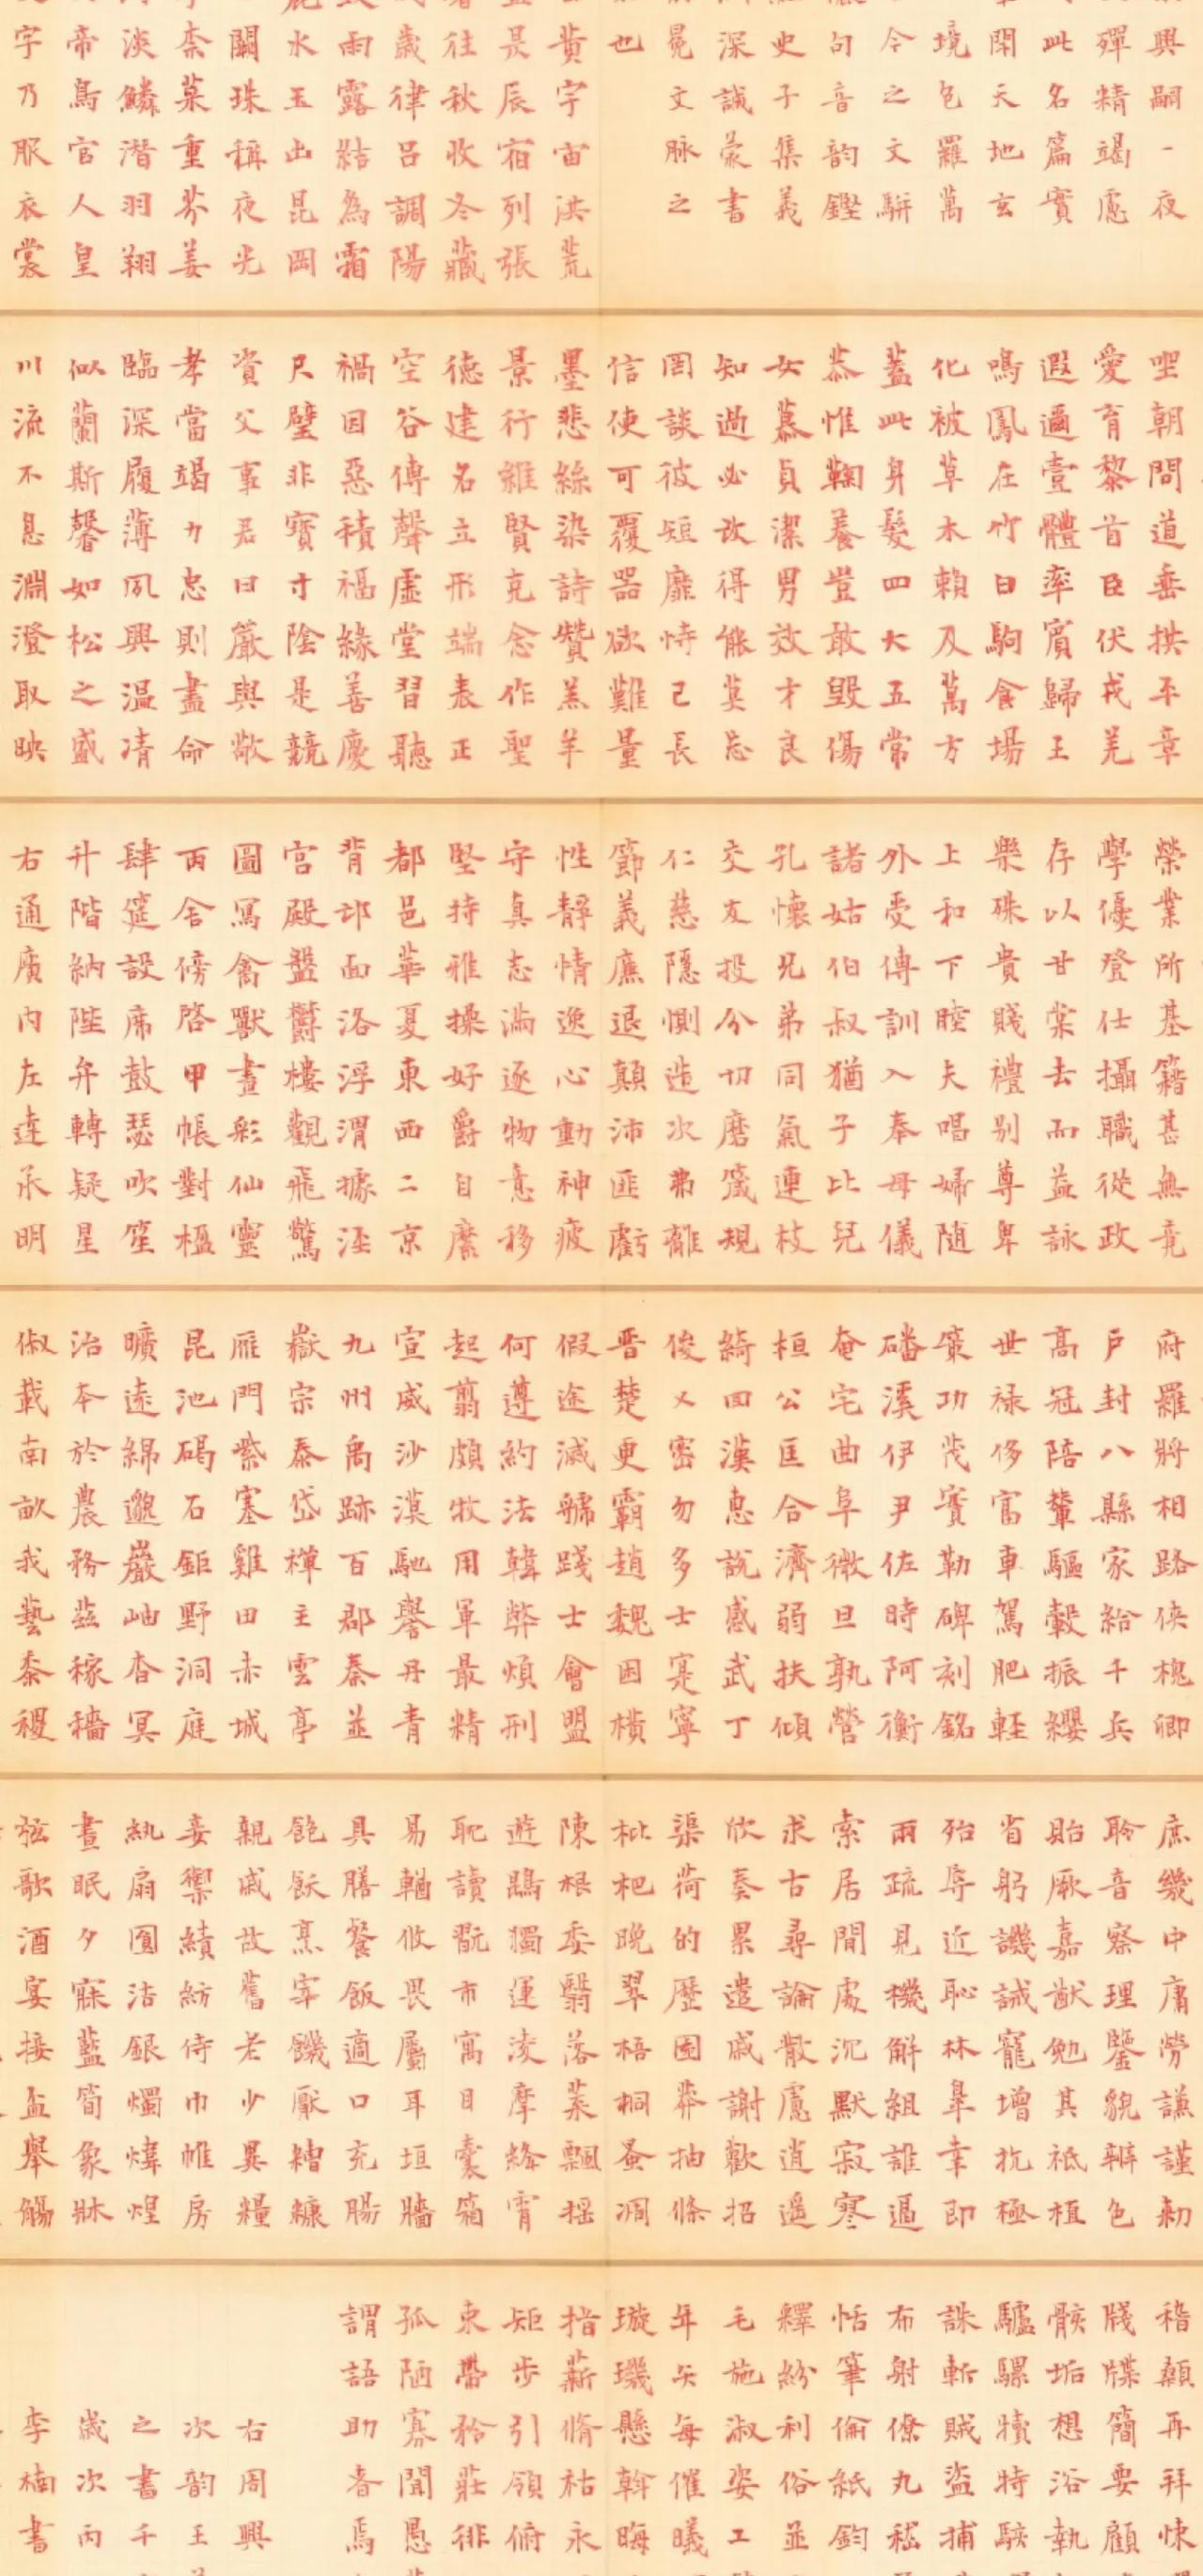 興嗣一夜
殫精竭慮
此名篇實
開天地玄
境包羅萬
今之文駢
句音韵鏗
史子集義
深誠蒙書
冕文脉之
也
黄宇宙洪荒
昃辰宿列張
往秋收冬藏
歲律呂調陽
雨露結為霜
水玉出昆岡
闕珠稱夜光
柰菜重芥姜
淡鱗潛羽翔
帝鳥官人皇
字乃服衣裳
坐朝問道垂拱平章
愛育黎首臣伏戎羌
遐邇壹體率賓歸王
鳴鳳在竹白駒食場
化被草木賴及萬方
蓋此身髮四大五常
恭惟鞠養豈敢毀傷
女慕貞潔男效才良
知過必改得能莫忘
罔談彼短靡恃己長
信使可覆器欲難量
墨悲絲染詩贊羔羊
景行維賢克念作聖
德建名立形端表正
空谷傳聲虛堂習聽
禍因惡積福緣善慶
尺璧非寶寸陰是競
資父事君曰嚴與敬
孝當竭力忠則盡命
臨深履薄夙興溫凊
似蘭斯馨如松之盛
川流不息淵澄取映
榮業所基籍甚無竟
學優登仕攝職從政
存以甘棠去而益詠
樂殊貴賤禮別尊卑
上和下睦夫唱婦隨
外受傅訓入奉母儀
諸姑伯叔猶子比兒
孔懷兄弟同氣連枝
交友投分切磨箴規
仁慈隱惻造次弗離
節義廉退顛沛匪虧
性靜情逸心動神疲
守真志滿逐物意移
堅持雅操好爵自縻
都邑華夏東西二京
背邙面洛浮渭據涇
宮殿盤鬱樓觀飛驚
圖寫禽獸畫彩仙靈
丙舍傍啓甲帳對楹
肆筵設席鼓瑟吹笙
升階納陛弁轉疑星
右通廣內左達承明
府羅將相路俠槐卿
戶封八縣家給千兵
高冠陪輦驅轂振纓
世祿侈富車駕肥輕
策功茂實勒碑刻銘
磻溪伊尹佐時阿衡
奄宅曲阜微旦孰營
桓公匡合濟弱扶傾
綺回漢惠說感武丁
俊乂密勿多士寔寧
晉楚更霸趙魏困橫
假途滅虢踐土會盟
何遵約法韓弊煩刑
起翦頗牧用軍最精
宣威沙漠馳譽丹青
九州禹跡百郡秦並
嶽宗泰岱禪主雲亭
雁門紫塞雞田赤城
昆池碣石鉅野洞庭
曠遠綿邈巖岫杳冥
治本於農務茲稼穡
俶載南畝我藝黍稷
庶幾中庸勞謙謹勅
聆音察理鑒貌辨色
貽厥嘉猷勉其祗植
省躬譏誡寵增抗極
殆辱近恥林皋幸即
兩疏見機解組誰逼
索居閒處沉默寂寥
求古尋論散慮逍遙
欣奏累遣慼謝歡招
渠荷的歷園莽抽條
枇杷晚翠梧桐蚤凋
陳根委翳落葉飄搖
遊鵾獨運凌摩絳霄
耽讀翫市寓目囊箱
易輶攸畏屬耳垣牆
具膳餐飯適口充腸
飽飫烹宰饑厭糟糠
親戚故舊老少異糧
妾御績紡侍巾帷房
紈扇圓潔銀燭煒煌
晝眠夕寐藍筍象牀
弦歌酒宴接盃舉觴
稽顙再拜悚
牋牒簡要顧
骸垢想浴執
驢騾犢特駭
誅斬賊盜捕
布射僚丸嵇
恬筆倫紙鈞
釋紛利俗並
毛施淑姿工
年矢每催曦
璇璣懸斡晦
指薪脩祜永
矩步引領俯
束帶矜莊徘
孤陋寡聞愚
謂語助者焉
右周興
次韵王
之書千
歲次丙
李楠書